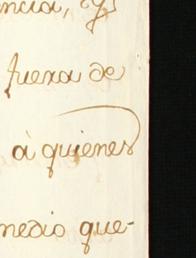 encia, y
fuera de
à quienes
medio que-